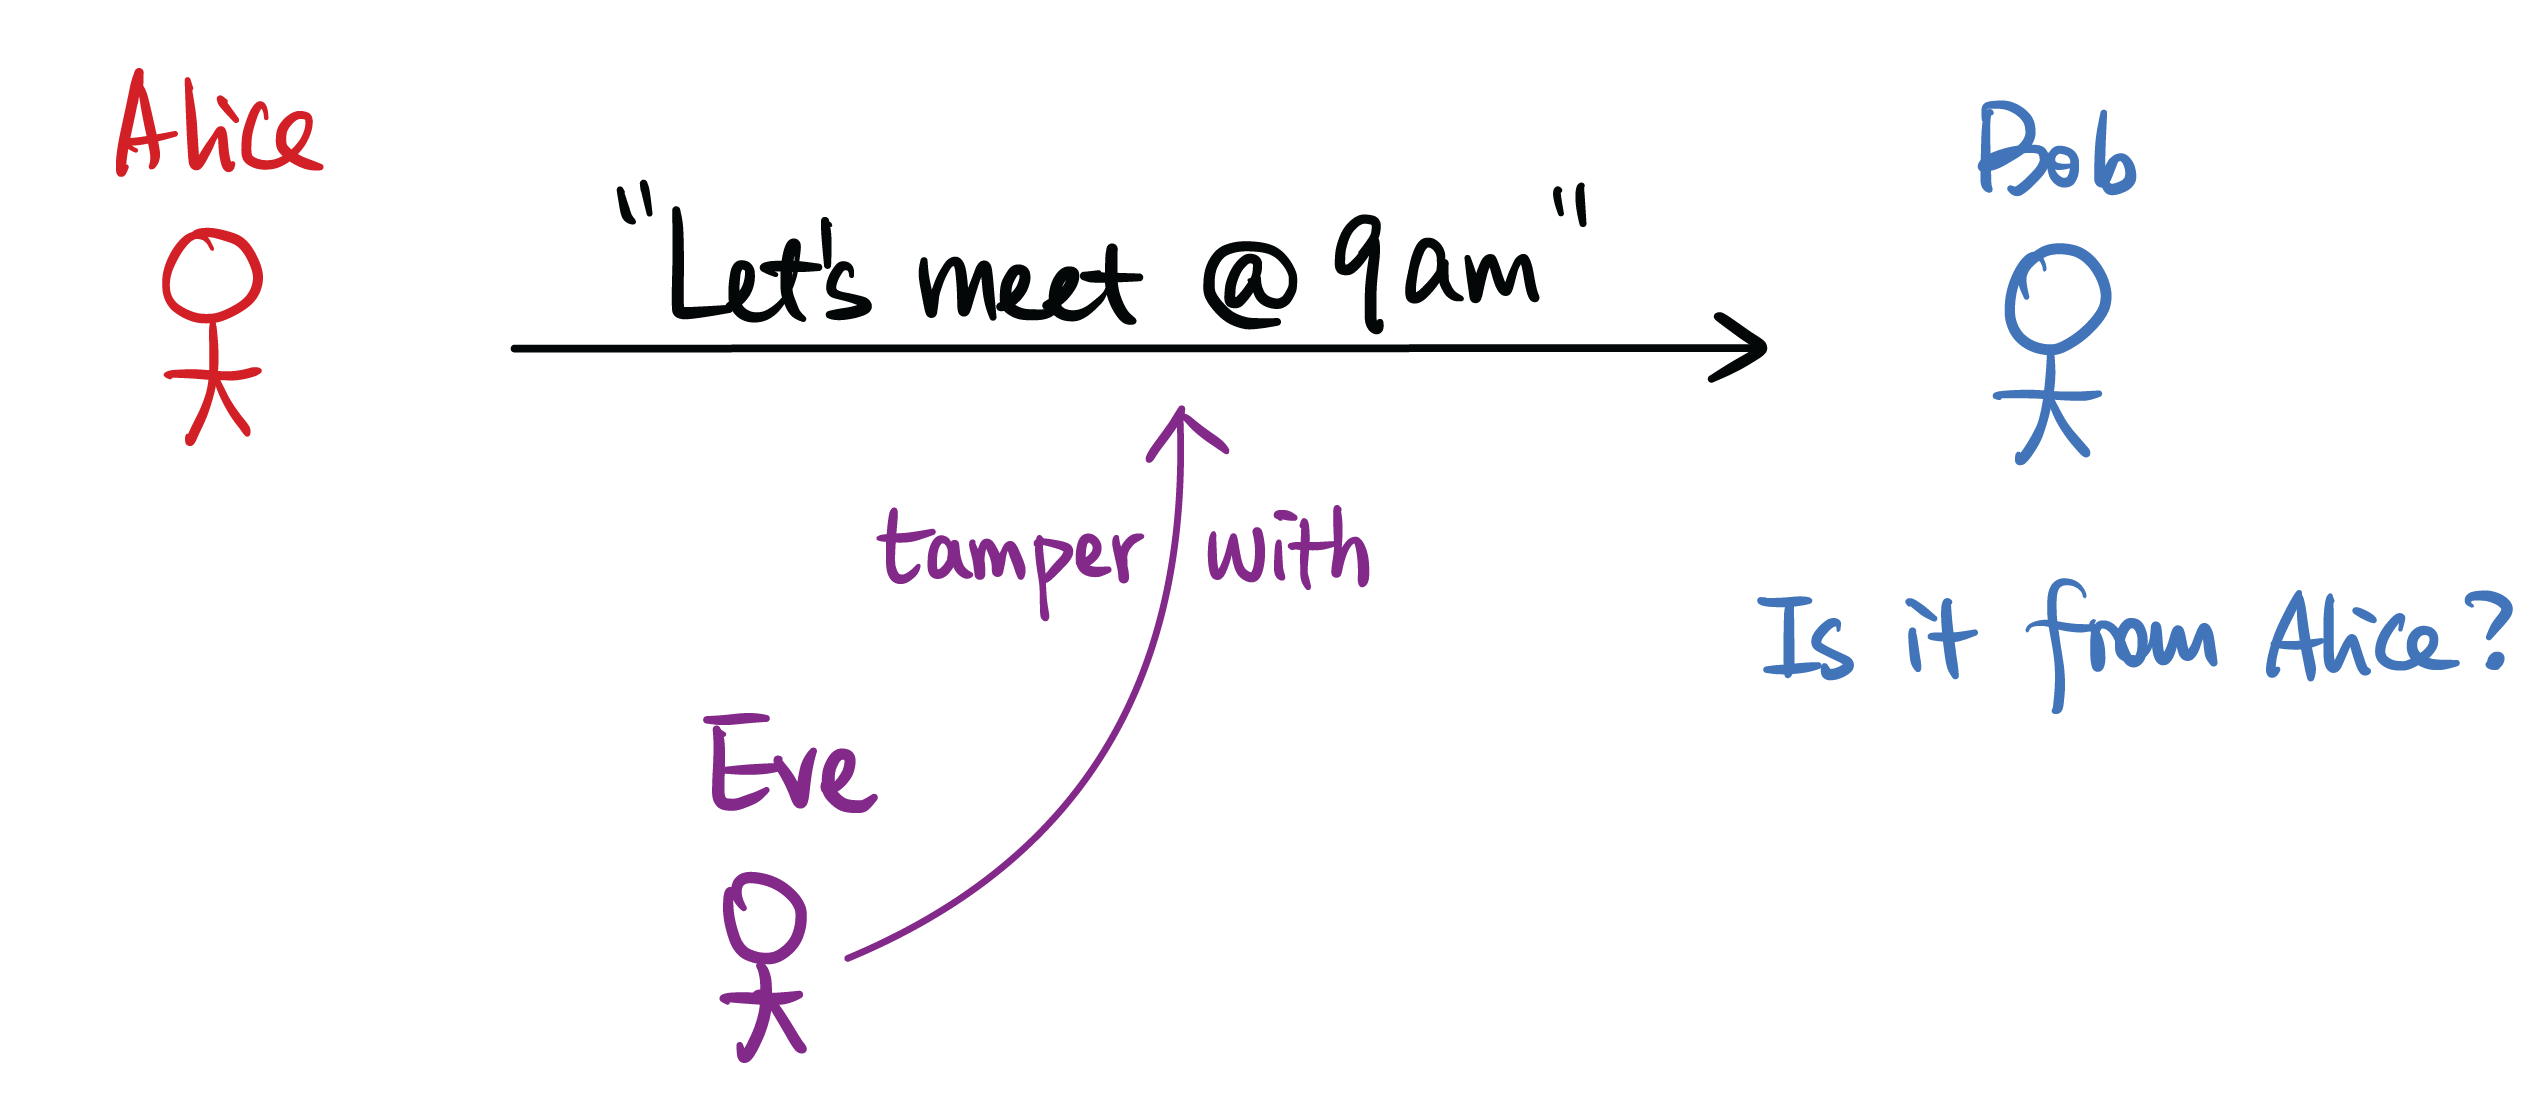 Alice
Bob
"Let's meet @ 9am"
tamper with
Is it from Alice?
Eve